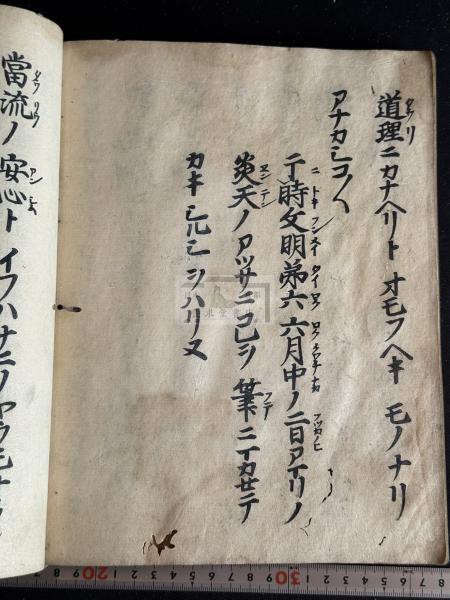 道理ニカナヘリト オモフヘキ モノナリ
アナカシコ〱
于時文明第六 六月中ノ二日アマリノ
炎天ノアツサニコレヲ 筆ニマカセテ
カキシルシヲハリヌ
當流ノ安心トイフハナニノヤウモナ